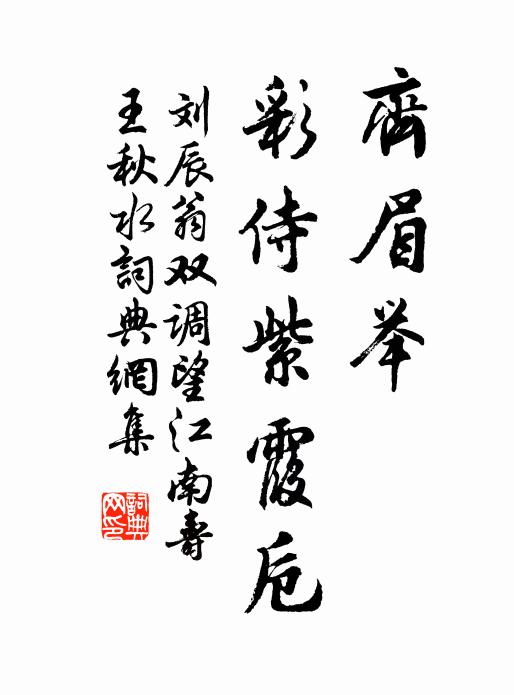 齊眉举
彩侍紫霞卮
刘辰翁双调望江南寿
王秋水詞典網集
詞典网印